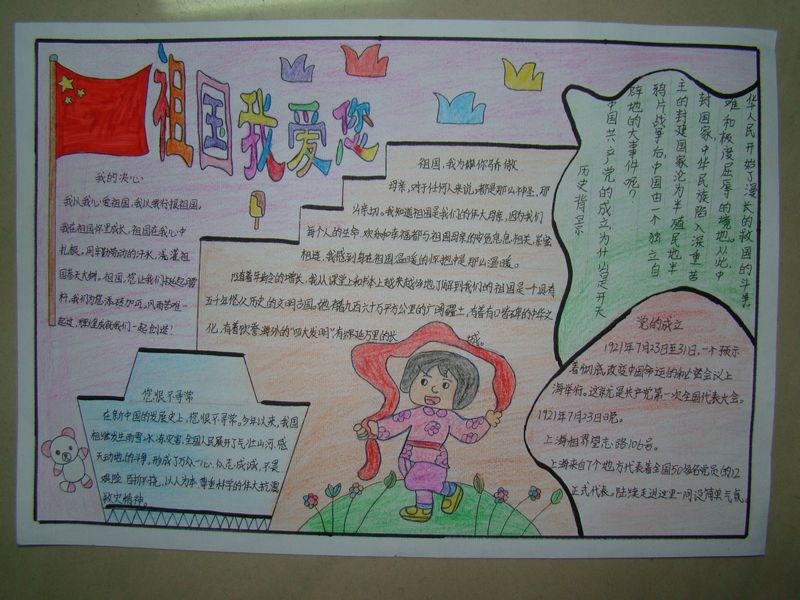 祖国我爱您
我的决心
我从我心爱祖国,我以我行报祖国。
我在祖国怀里成长,祖国在我心中
扎根。用辛勤劳动的汗水,浇灌祖
国参天大树。祖国,您让我们扶起
杆,我们为您添砖加瓦。风雨苦难一
起过,辉煌成就我们一起创造!
祖国,我为媒你骄傲
母亲,对于任何人来说,都是那么神圣,那
么亲切。我知道祖国是我们的伟大母亲,因为我们
每个人的生命、欢乐和幸福都与祖国母亲的安危息息相关,紧密
相连,我感到身在祖国温暖的怀抱中是那么温暖。
随着年龄的增长,我从课堂上和书本上越来越多地了解到我们的祖国是一个具有
五千年悠久历史的文明古国。他拥有九百六十万平方公里的广阔疆土,有着有口皆碑的中华文
化,有着吹誉海外的“四大发明”,有绵延万里的长 城。
历史背景
中国共产党的成立为什么是开天
辟地的大事件呢?
鸦片战争后,中国由一个独立自
主的封建国家沦为半殖民地半
封国家,中华民族陷入深重苦
难和极度屈辱的境地。从此中
华人民开始了漫长的救国的斗争。
党的成立
1921年7月23日至31日,一个预示
着彻底改变中国命运的秘密会议上
海举行。这就是共产党第一次全国代表大会。
1921年7月23日晚。
上海租界望志路106号。
上海来自7个地方代表着全国50多名党员的12
正式代表。陆续走进这里一间没陈
您恨不寻常
在新中国的发展史上,您恨不寻常。今年以来,我国
相继发生雨雪冰冻灾害,全国人民展开了气壮山河、感
天动地的斗争,形成了万众一心、众志成诚、不畏
艰险、百折不挠、以人为本、尊重科学的伟大抗震
救灾精神。